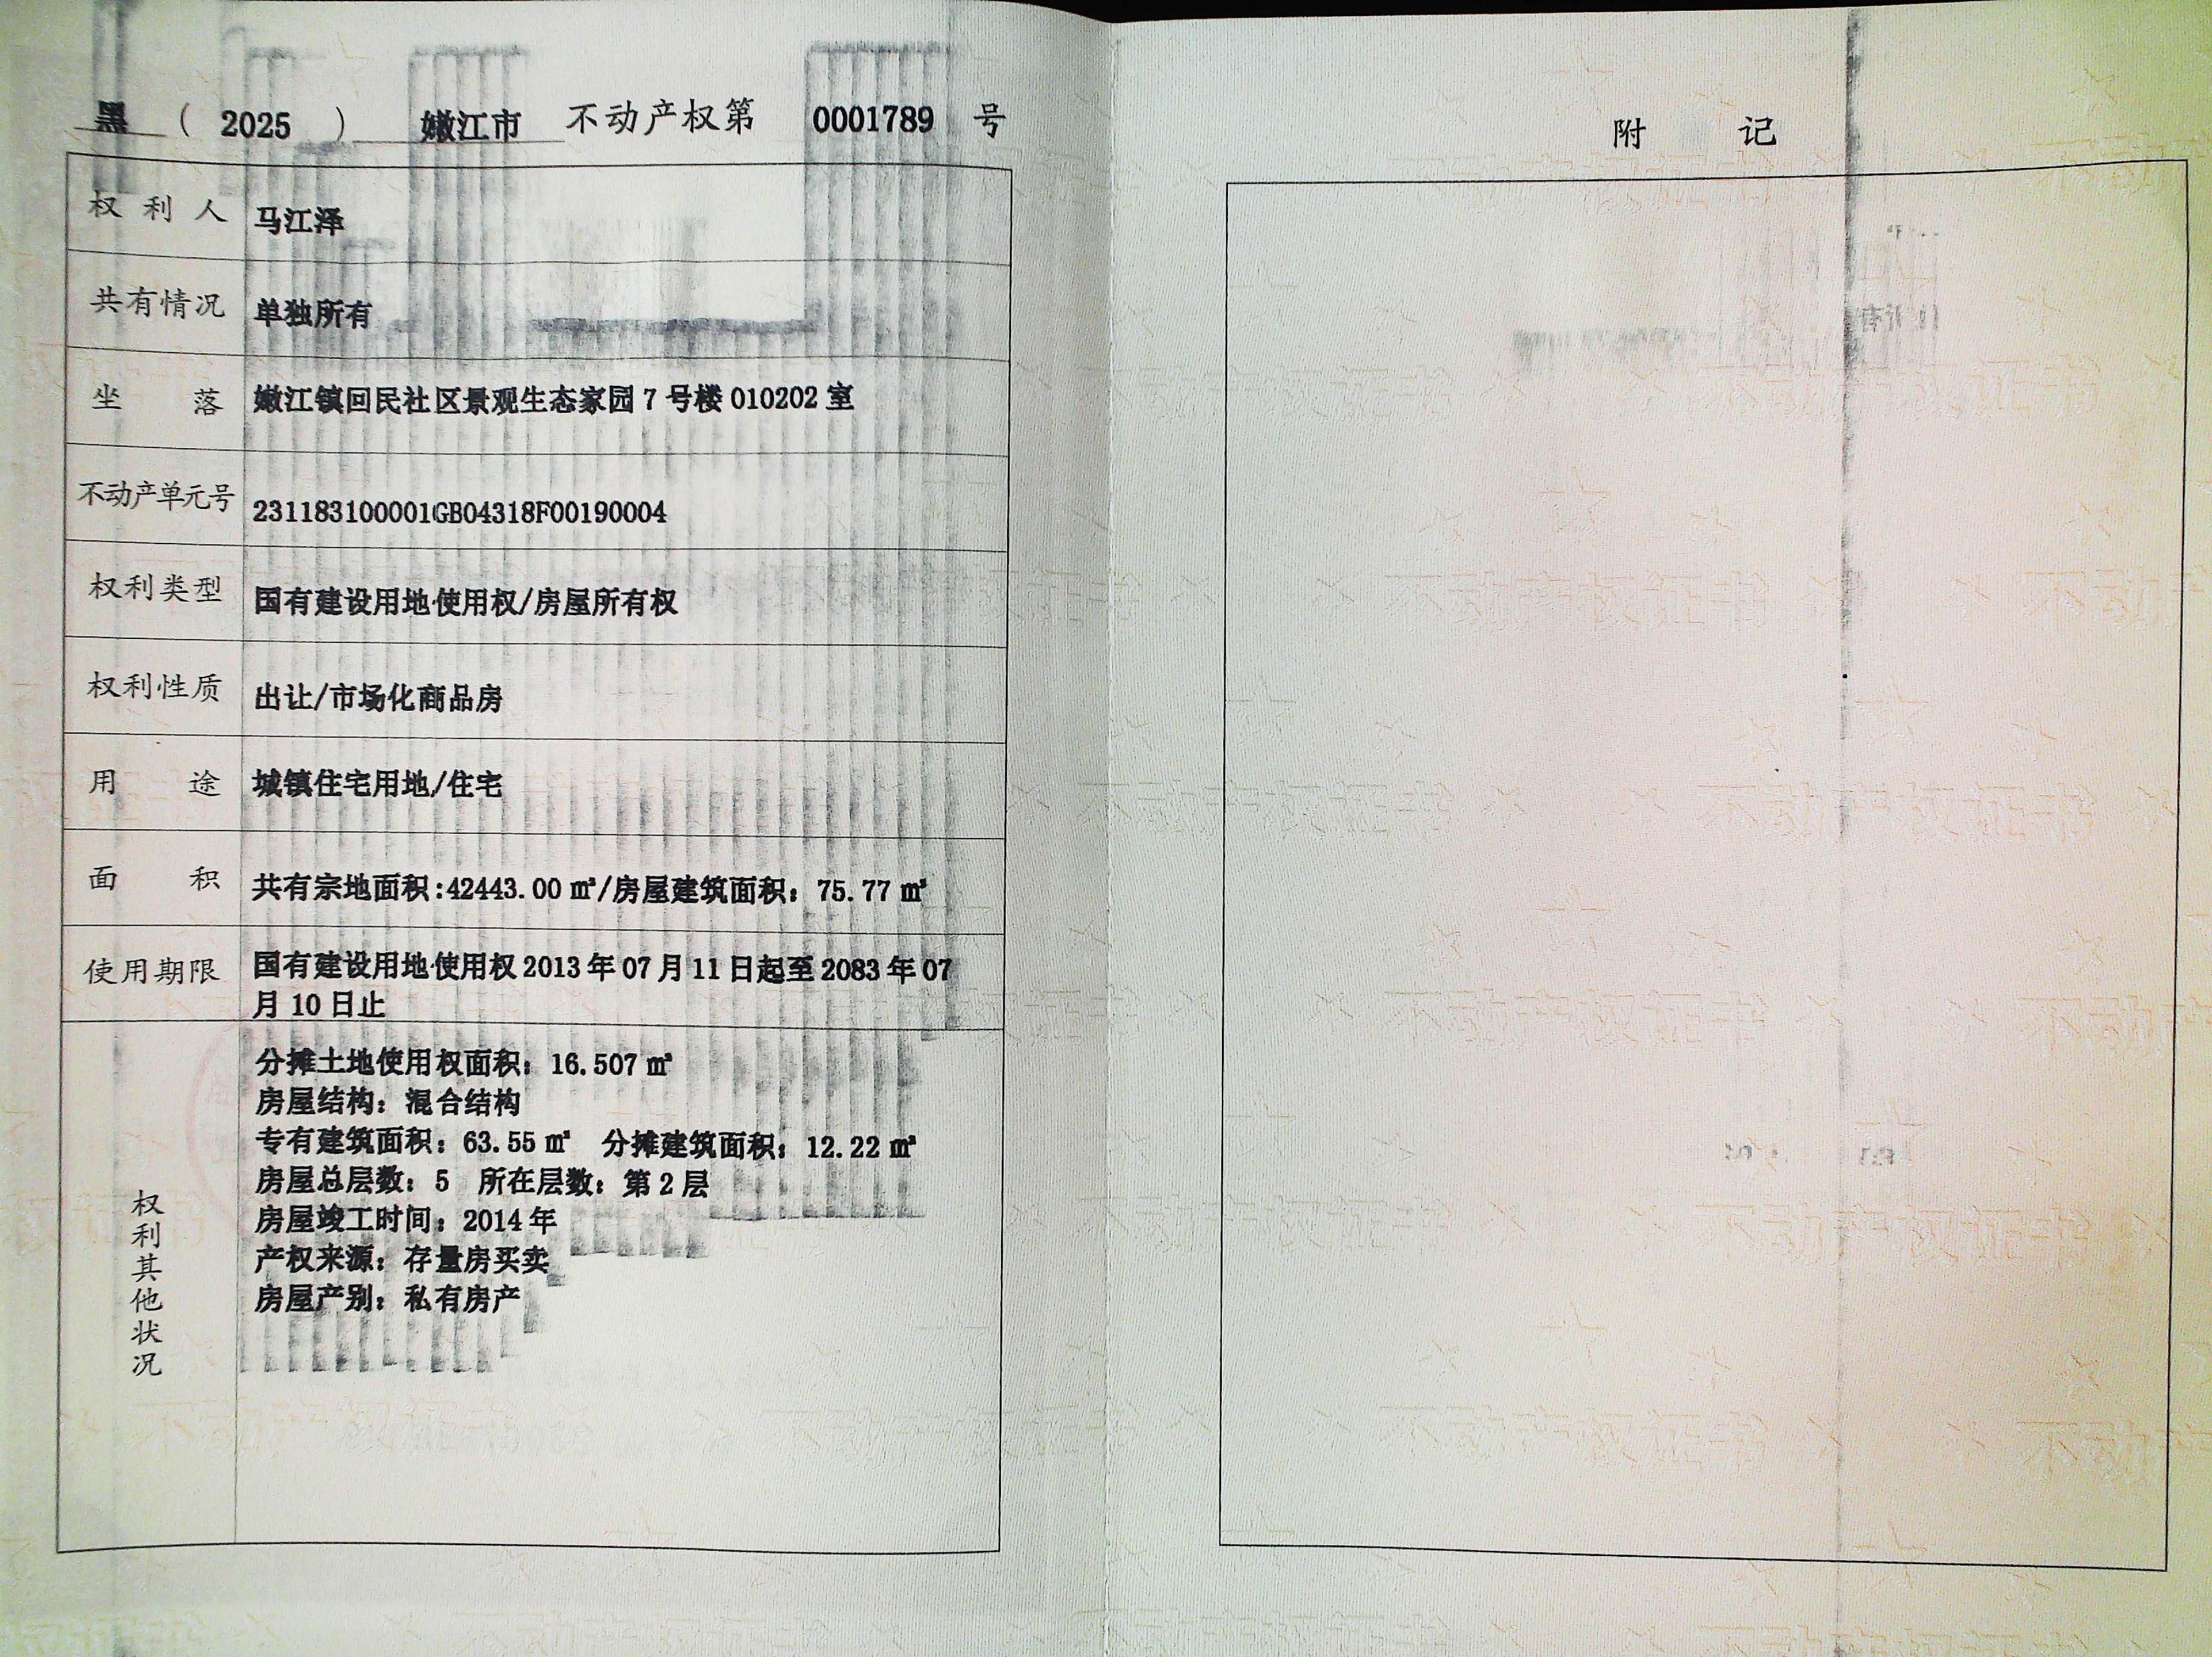 黑 （ 2025 ） 嫩江市 不动产权第 0001789 号
权利人 马江泽
共有情况 单独所有
坐落 嫩江镇回民社区景观生态家园7号楼010202室
不动产单元号 231183100001GB04318F00190004
权利类型 国有建设用地使用权/房屋所有权
权利性质 出让/市场化商品房
用途 城镇住宅用地/住宅
面积 共有宗地面积:42443.00㎡/房屋建筑面积：75.77㎡
使用期限 国有建设用地使用权2013年07月11日起至2083年07
月10日止
权利其他状况
分摊土地使用权面积：16.507㎡
房屋结构：混合结构
专有建筑面积：63.55㎡ 分摊建筑面积：12.22㎡
房屋总层数：5 所在层数：第2层
房屋竣工时间：2014年
产权来源：存量房买卖
房屋产别：私有房产
附记